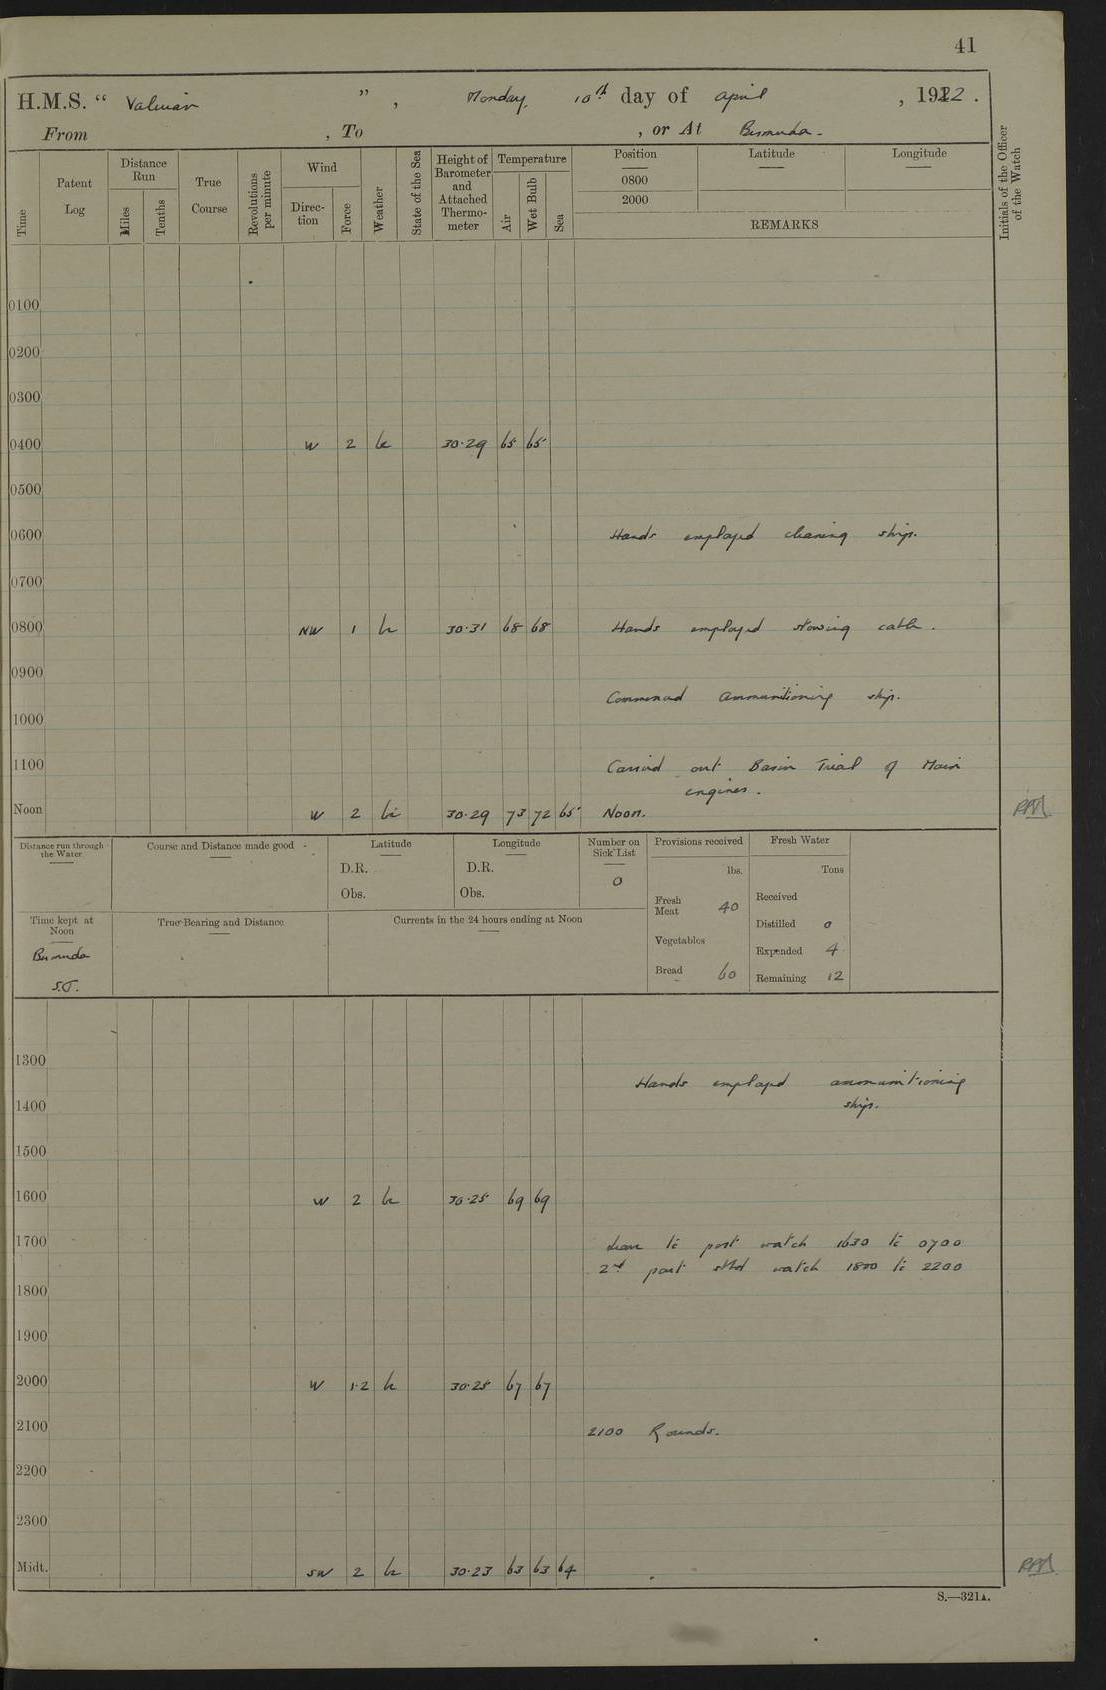 41
H.M.S. “ Valerian ” , Monday, 10th day of April , 1922 .
From , To , or At Bermuda.
Time
Patent Log
Distance Run
Miles
Tenths
True Course
Revolutions per minute
Wind
Direc-tion
Force
Weather
State of the Sea
Height of Barometer and Attached Thermo-meter
Temperature
Air
Wet Bulb
Sea
Position
0800
2000
Latitude
Longitude
REMARKS
Initials of the Officer of the Watch
0100
0200
0300
0400 W 2 bc 30.29 65 65
0500
0600 Hands employed cleaning ship.
0700
0800 NW 1 bc 30.31 68 68 Hands employed stowing cable.
0900
Commenced ammunitioning ship.
1000
1100 Carried out Basin Trial of Main
engines.
Noon W 2 bc 30.29 73 72 65 Noon.
Distance run through the Water
Course and Distance made good
Latitude
D.R.
Obs.
Longitude
D.R.
Obs.
Number on Sick List
0
Provisions received
lbs.
Fresh Meat 40
Vegetables
Bread 60
Fresh Water
Tons
Received
Distilled 0
Expended 4
Remaining 12
Time kept at Noon
Bermuda
S.T.
True Bearing and Distance
Currents in the 24 hours ending at Noon
1300
Hands employed ammunitioning
1400 ship.
1500
1600 W 2 bc 30.25 69 69
1700 Leave to port watch 1630 to 0700
2nd part stbd watch 1800 to 2200
1800
1900
2000 W 1.2 bc 30.25 67 67
2100 2100 Rounds.
2200
2300
Midt. SW 2 bc 30.23 63 63 64
S.—321A.